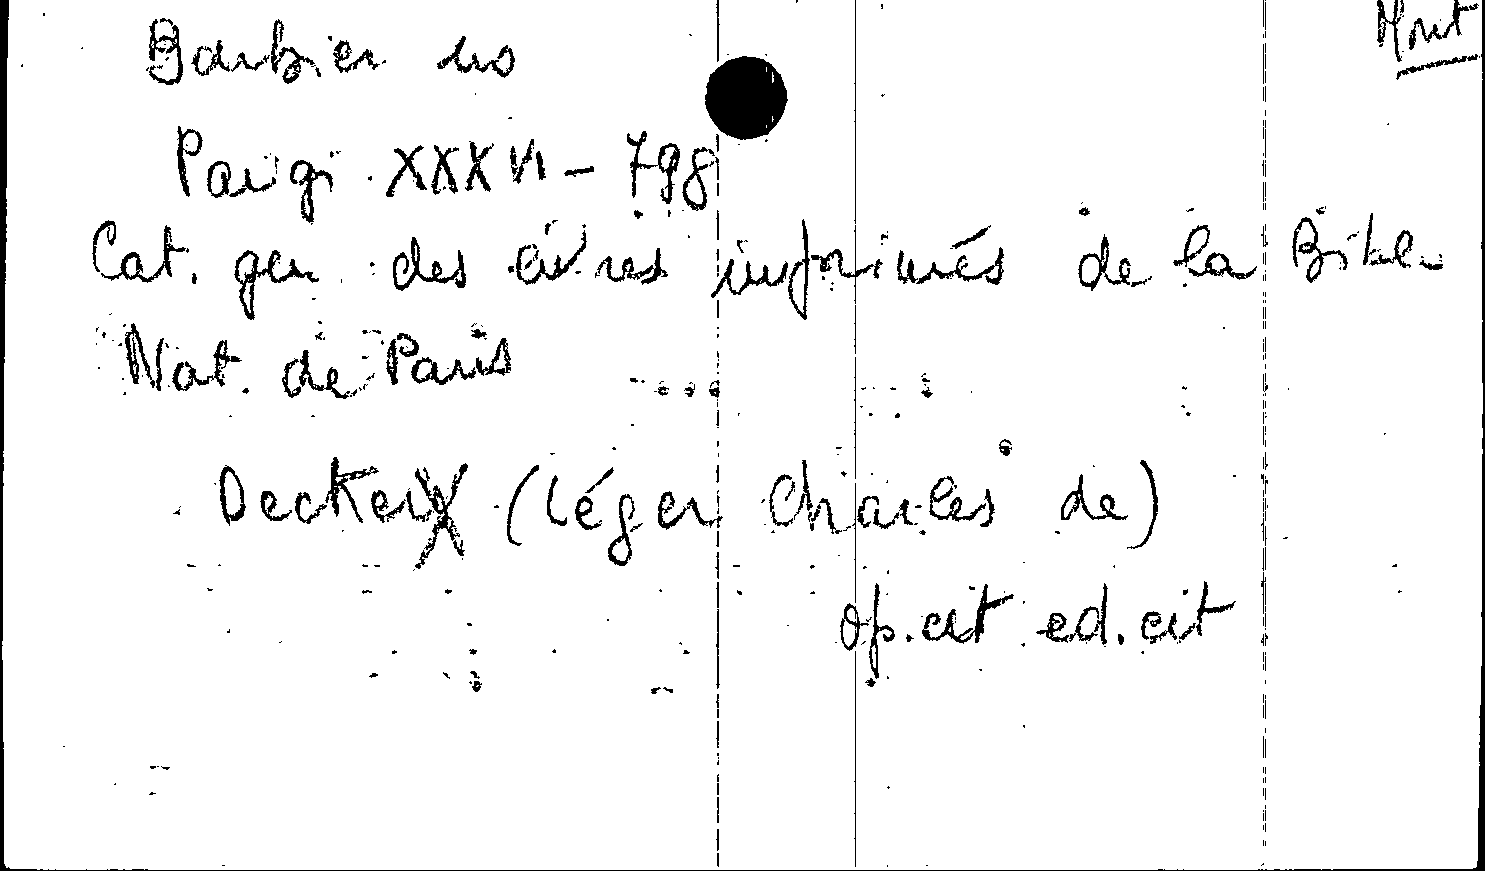 Mont
Barbier no
Parigi XXXVI - 798
Cat. gen. des livres imprimés de la Bibl.
Nat. de Paris
Decker (Léger Charles de)
op. cit ed. cit